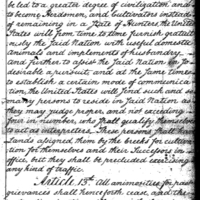 be led to a greater degree of civilization and
to become Herdsmen and Cultivators instead
of remaining in a State of Hunters the United
States will from time to time furnish gratui
tously the said Nation with useful domestic
animals and implements of husbandry
and further to assist the said Nation in so
desirable a pursuit and at the same time
to establish a certain mode of communica
tion, the United States will send such and so
many persons to reside in said Nation as
they may judge proper, and not exceeding
four in number, who shall qualify themselves
to act as interpreters. These persons shall have
Lands assigned them by the Creeks for cultiva
tion for themselves and their Successors in
office, but they shall be precluded exercising
any kind of traffic.
Article 13th. All animosities for past
grievances shall henceforth cease, and the